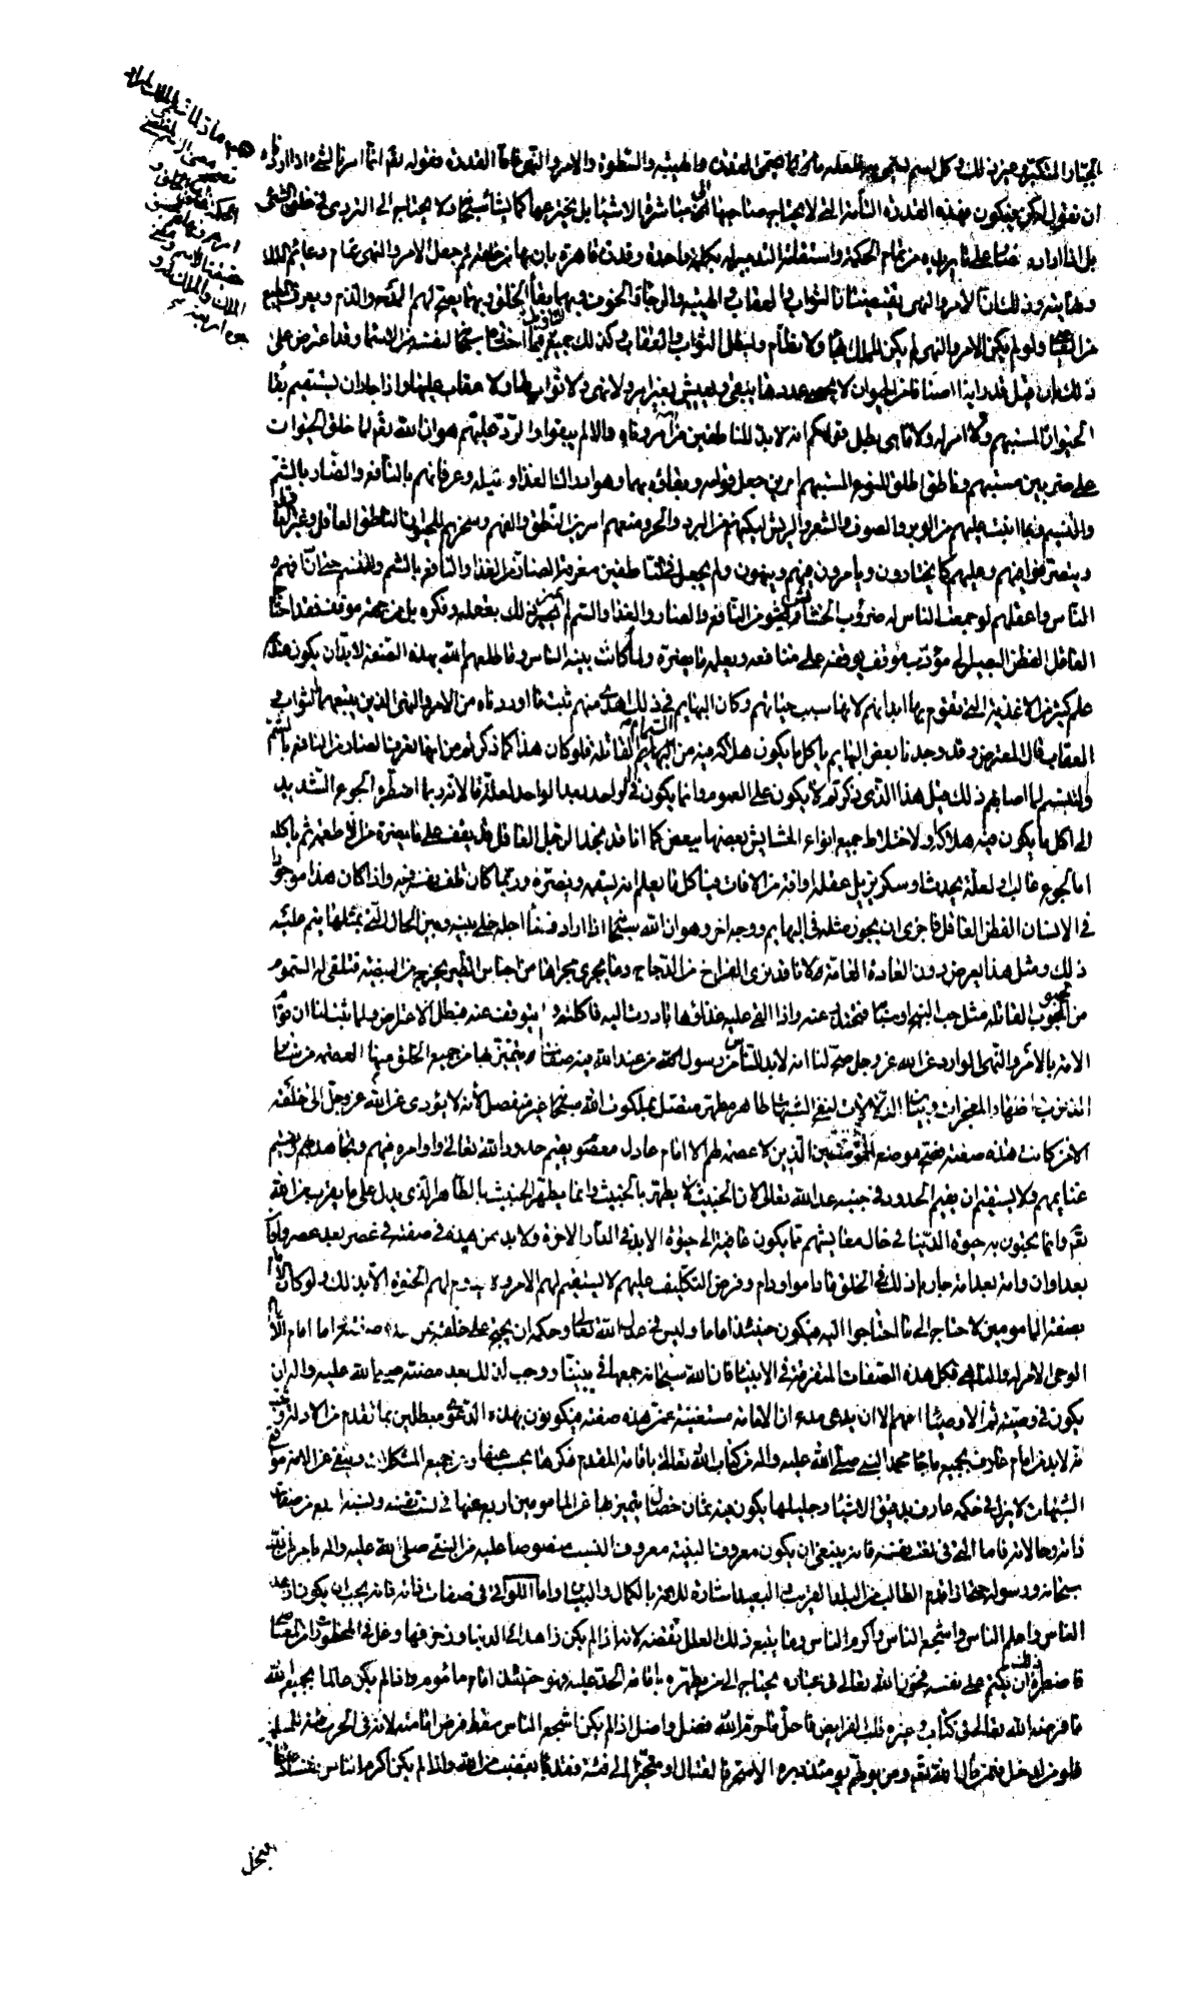 الجبار المتكبر وغير ذلك وكل اسم يليق به
ان نقول له كن فيكون فهذه القدرة التامة التي لا يحتاج صاحبها الى مباشرة الاشياء بل يخترعها كما يشاء سبحانه ولا يحتاج الى التروى في خلق الشئ
بل اذا اراده من تمام الحكمة واستقامة التدبير له بكلمة واحدة وقدرة قاهرة بان بها من خلقه ثم جعل الامر والنهى تمام دعائم الملك
ونهايته وذلك ان الامر والنهى يقتضيان الثواب والعقاب والهيبة والرجاء والخوف وبهما بقاء الخلق وبهما يصح لهم المدح والذم ويعرف المطيع
من العاصى ولو لم يكن الامر والنهى لم يكن للملك بهاء ولا نظام ولبطل الثواب والعقاب وكذلك جميع التأويل فيما اختاره سبحانه لنفسه من الاسماء وقد اعترض على
ذلك بان قيل قد راينا اصنافا من الحيوان لا يحصى عددها يبقى ويعيش بغير امر ولا نهى ولا ثواب لها ولا عقاب عليها واذا جاز ان يستقيم بقاء
الحيوان المستبهم ولا امر له ولا ناهى بطل قولكم انه لا بد للناطقين من آمر وناه والا لم يبقوا والرد عليهم هو ان الله تعالى لما خلق الحيوان
على ضربين مستبهم وناطق اطلق للنوع المستبهم امرين جعل قوامه وبقاءه بهما وهو ادراك الغذاء ونيله وعرفانهم بالنافع والضار بالشم
والتنسم وبما انبت عليهم من الوبر والصوف والشعر والريش ليكنهم من البرد والحر ومنعهم امرين النطق والفهم وسخرهم للحيوان الناطق العاقل وغير العاقل
ويتصرفوا فيهم وعليهم كما يختارون ويامرون فيهم وينهون ولم يجعل في الناطقين معرفة الضار من الغذاء والنافع بالشم والتنسم حتى ان افهم
الناس واعقلهم لو جمعت الناس له ضروب الحشائش من النافع والضار والغذاء والسم لم يميز ذلك بعقله وفكره بل من جهة موقف فقد احتاج
العاقل الفطن البصير الى مؤدب موقف يوقفه على منافعه ويعلمه ما يضره ولما كانت بينة الناس وما طبعهم الله بهذه الصفة لا بد ان يكون عندهم
علم كثير من الاغذية التي تقوم بها ابدانهم لانها سبب حياتهم وكان البهايم في ذلك اهدى منهم ثبت ما اوردناه من الامر والنهى الذين يتبعهما الثواب و
العقاب قال المعترض وقد وجدنا بعض البهايم ياكل ما يكون هلاكه فيه من السمام القاتله فلو كان هذا كما ذكرتم من انها تعرف الضار من النافع بالشم
والتنسم لما اصابهم ذلك قيل هذا الذى ذكرتم لا يكون على العموم وانما يكون في الواحد بعد الواحد لعلة ما لانه ربما اضطره الجوع الشديد
الى اكل ما يكون فيه هلاكه او لاختلاط جميع انواع الحشايش بعضها ببعض كما انا قد نجد الرجل العاقل قد يقف على ما يضره من الاطعمة ثم ياكله
اما لجوع غالب او لعلة يحدث او سكر يزيل عقله او آفة من الآفات فياكل ما يعلم انه يسقمه ويضره وربما كان تلف نفسه فيه واذا كان هذا موجودا
في الانسان الفطن العاقل فاحرى ان يجوز مثله في البهايم ووجه اخر وهو ان الله سبحانه اذا اراد قضاء اجله خلى بينه وبين الحال التي بمثلها يتم عليه
ذلك ومثل هذا يعرض دون العادة العامة لانا قد نرى الفراخ من الدجاج وما يجرى مجراها من اجناس الطير يخرج من البيضة فتلقى له السموم
من الحبوب القاتلة مثل حب البنج وغيره عنه واذا القى عليه غذاؤها بادرت اليه فاكلته ولم يتوقف عنه فبطل الاعتراض ولما ثبت لنا ان قوام
الامة بالامر والنهى الوارد عن الله عز وجل صح لنا انه لا بد للناس من رسول من عند الله فيه صفات يتميز بها من جميع الخلق منها العصمة من سائر
الذنوب واظهار المعجزات وبيان الدلالات لنفى الشبهات طاهر مطهر متصل بملكوت الله سبحانه غير منفصل لانه لا يؤدى عن الله عز وجل الى خلقه
الا من كانت هذه صفته فصح موضع المأمونين الذين لا عصمة لهم الا امام عادل معصوم يقيم حدود الله تعالى واوامره فيهم ويجاهد بهم ويقسم
غنايمهم ولا يستقيم ان يقيم الحدود من في جنبه حد الله تعالى لان الخبيث لا يطهر بالخبيث وانما يطهر الخبيث بالطاهر الذى يدل على ما يقرب من الله
تعالى وانما يحيون به حيوة الدنيا في حال معايشهم مما يكون عاقبته الى حيوة الابد في الدار الاخرة ولا بد ممن هذه صفته في عصر بعد عصر واوان
بعد اوان وامة بعد امة جاريا ذلك في الخلق ما داموا ودام فرض التكليف عليهم لا يستقيم لهم الامر ولا يدوم لهم الحيوة الا بذلك ولو كان الامام
بصفة المأمومين لاحتاج الى ما احتاجوا اليه فيكون حينئذ اماما وليس في عدل الله تعالى وحكمته ان يحتج على خلقه بمن هذه صفته
الوحى الامر له والناهى فكل هذه الصفات المتفرقة في الانبياء فان الله سبحانه جمعها في نبينا ووجب لذلك بعد مضيه صلى الله عليه واله ان
يكون في وصيه ثم الاوصياء اللهم الا ان يدعى مدع ان الامامة مستغنية عمن هذه صفته فيكونون بهذه الدعوى مبطلين بما تقدم من الادلة وثبت
انه لا بد من امام عارف بجميع ما جاء به محمد النبى صلى الله عليه واله من كتاب الله تعالى باقامة المقدم ذكرها يجيب عنها وعن جميع المشكلات وينفى عن الامة مواقع
الشبهات لا يزل في حكمه عارف بدقيق الاشياء وجليلها يكون فيه ثمان خصال يتميز بها عن المأمومين اربع منها في نعت نفسه ونسبه واربع من صفات
ذاته وحالاته فاما التي في نعت نفسه فانه ينبغى ان يكون معروف البيت معروف النسب منصوصا عليه من النبى صلى الله عليه واله بامر من الله
سبحانه ورسوله واما اللواتى في صفات ذاته فانه يجب ان يكون ازهد
الناس واعلم الناس واشجع الناس واكرم الناس وما يتبع ذلك لعلل تقتضيه لانه اذا لم يكن زاهدا في الدنيا وزخرفها دخل في المحظورات من المعاصى
فاضطره ذلك ان يكتم على نفسه فيخون الله تعالى في عباده يحتاج الى من يطهره باقامة الحد عليه فهو حينئذ امام مأموم واذا لم يكن عالما بجميع
ما فرضه الله تعالى في كتابه وغيره قلب الفرايض فاحل ما حرم الله فضل واضل واذا لم يكن اشجع الناس سقط فرض امامته لانه في الحرب فئة للمسلمين
فلو فر لدخل فيمن قال الله تعالى ومن يولهم يومئذ دبره الا متحرفا لقتال او متحيزا الى فئة فقد باء بغضب من الله واذا لم يكن اكرم الناس نفسا